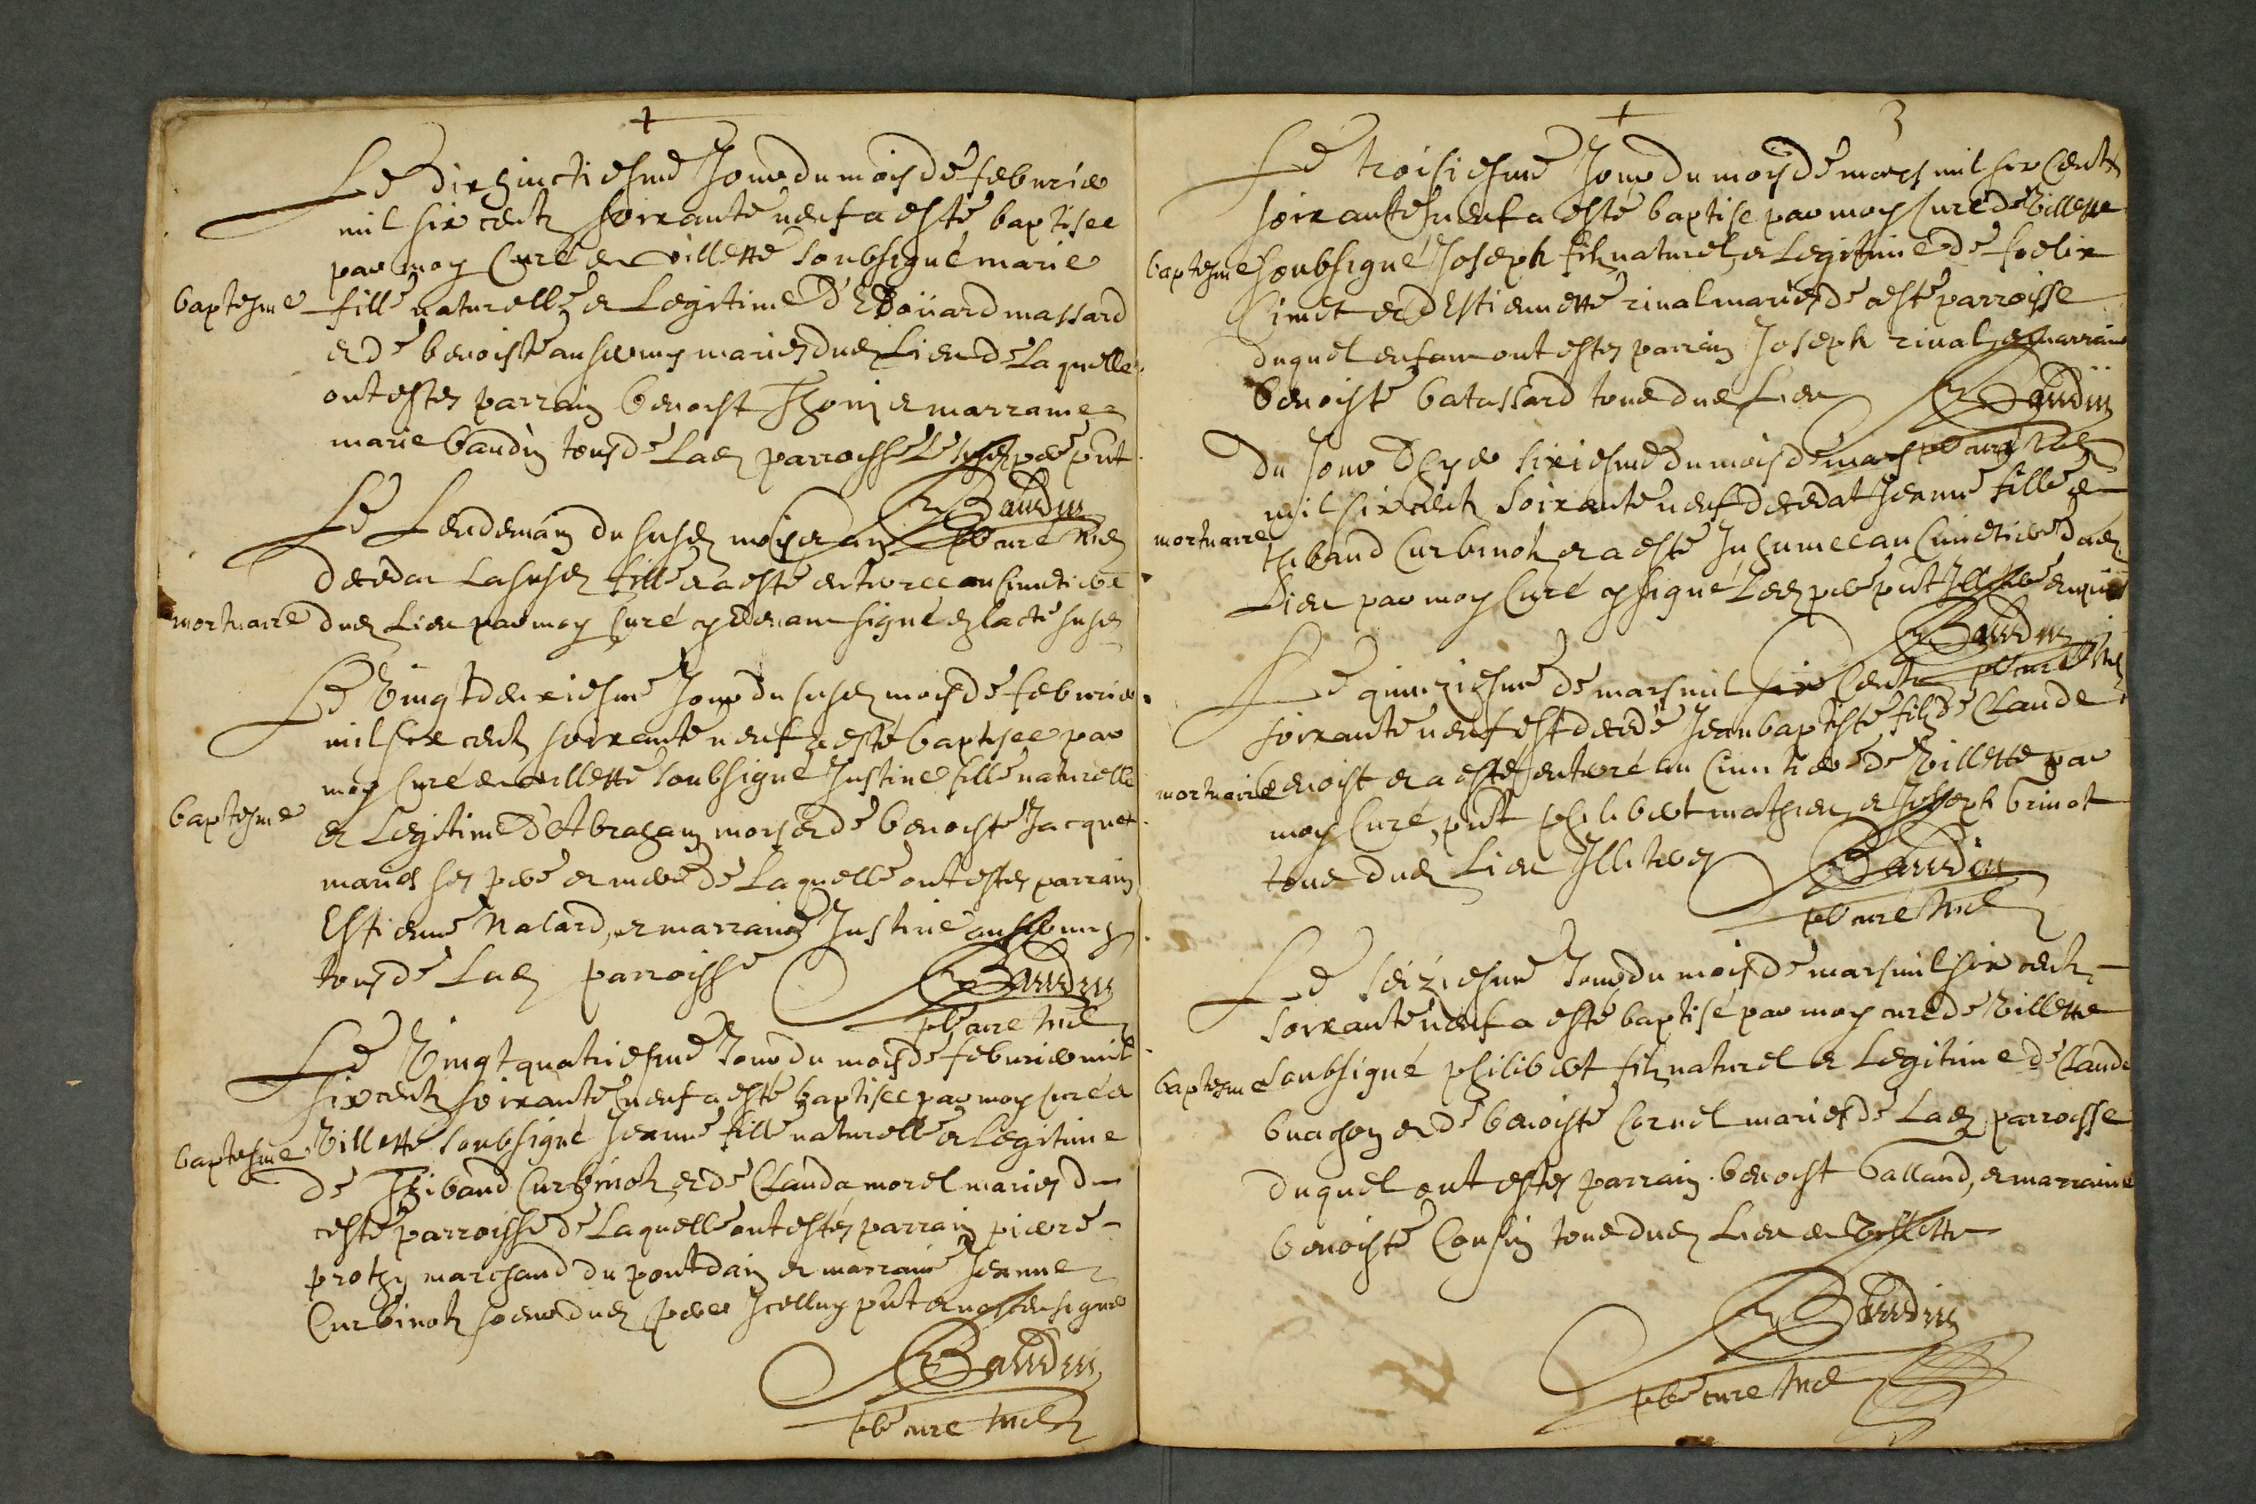 Le dixhuictiesme Jour du mois de febvrier
mil six centz soixante neuf a esté baptisee
par moy Curé de villette soubsigné marie
baptesme fille naturelle et Legitime d'Edoüard massard
et de benoiste mariez dud Lieu de Laquelle
ont estes parrain benoist Thoni et marraine
marie baudin tous de Lad parroisse
Baudin
pbre curé
Le Lendemain du susd mois et an
deceda La susd fille et a esté enterree au Cimetiere
mortuaire dud Lieu par moy Curé cydevant signé a lacte susd
Le vingtdeuxiesme Jour du susd mois de febvrier
mil six centz soixante neuf a esté baptisee par
moy Curé de villette soubsigné Justine fille naturelle
baptesme et Legitime d'Abraham et de benoiste Jacquet
mariés ses pere et mere de Laquelle ont estes parrain
Estienne Nalard, et marraine Justine
tous de Lad parroisse
Baudin
pbre curé
Le Vingt quatriesme Jour du mois de febvrier mil
six centz soixante neuf a esté baptisee par moy curé de
baptesme Villette soubsigné Jeanne fille naturelle et Legitime
de Thibaud Curbinot et de Clauda morel mariez de
ceste parroisse de Laquelle ont estés parrain pierre
prothy marchand du pontdain et marraine Jeanne
Curbinot soeur dud pere
Baudin
pbre curé
3
Le troisiesme Jour du mois de mars mil six centz
soixante neuf a esté baptisé par moy Curé de Villette
baptesme soubsigné Joseph filz naturel et Legitime de foelix
et d'Estiennette rival mariés de ceste parroisse
duquel enfant ont estes parrain Joseph rival et marraine
benoiste batassard tous dud Lieu
Baudin
pbre curé
du Jour d'hyer sixiesme du mois de mars
mil six centz Soixante neuf deceda Jeanne fille de
mortuaire thibaud Curbinot et a esté Inhumee au Cimetiere dud
Lieu par moy Curé cy signé Led pere pnt
Baudin
pbre curé
Le quinziesme de mars mil six Centz
soixante neuf est decedé Jean baptiste filz de Claude
mortuaire benoist et a esté enterré au Cimetiere de Villette par
moy Curé, pnt philibert mathieu et Joseph brinot
tous dud Lieu Illiteres
Baudin
pbre curé
Le seiziesme Jour du mois de mars mil six centz
soixante neuf a esté baptisé par moy curé de Villette
baptesme soubsigné philibert filz naturel et Legitime de Claude
buathon et de benoiste Cornel mariés de Lad parroisse
duquel ont estes parrain benoist balland, et marraine
benoiste Cousin tous dud Lieu de Villette
Baudin
pbre curé